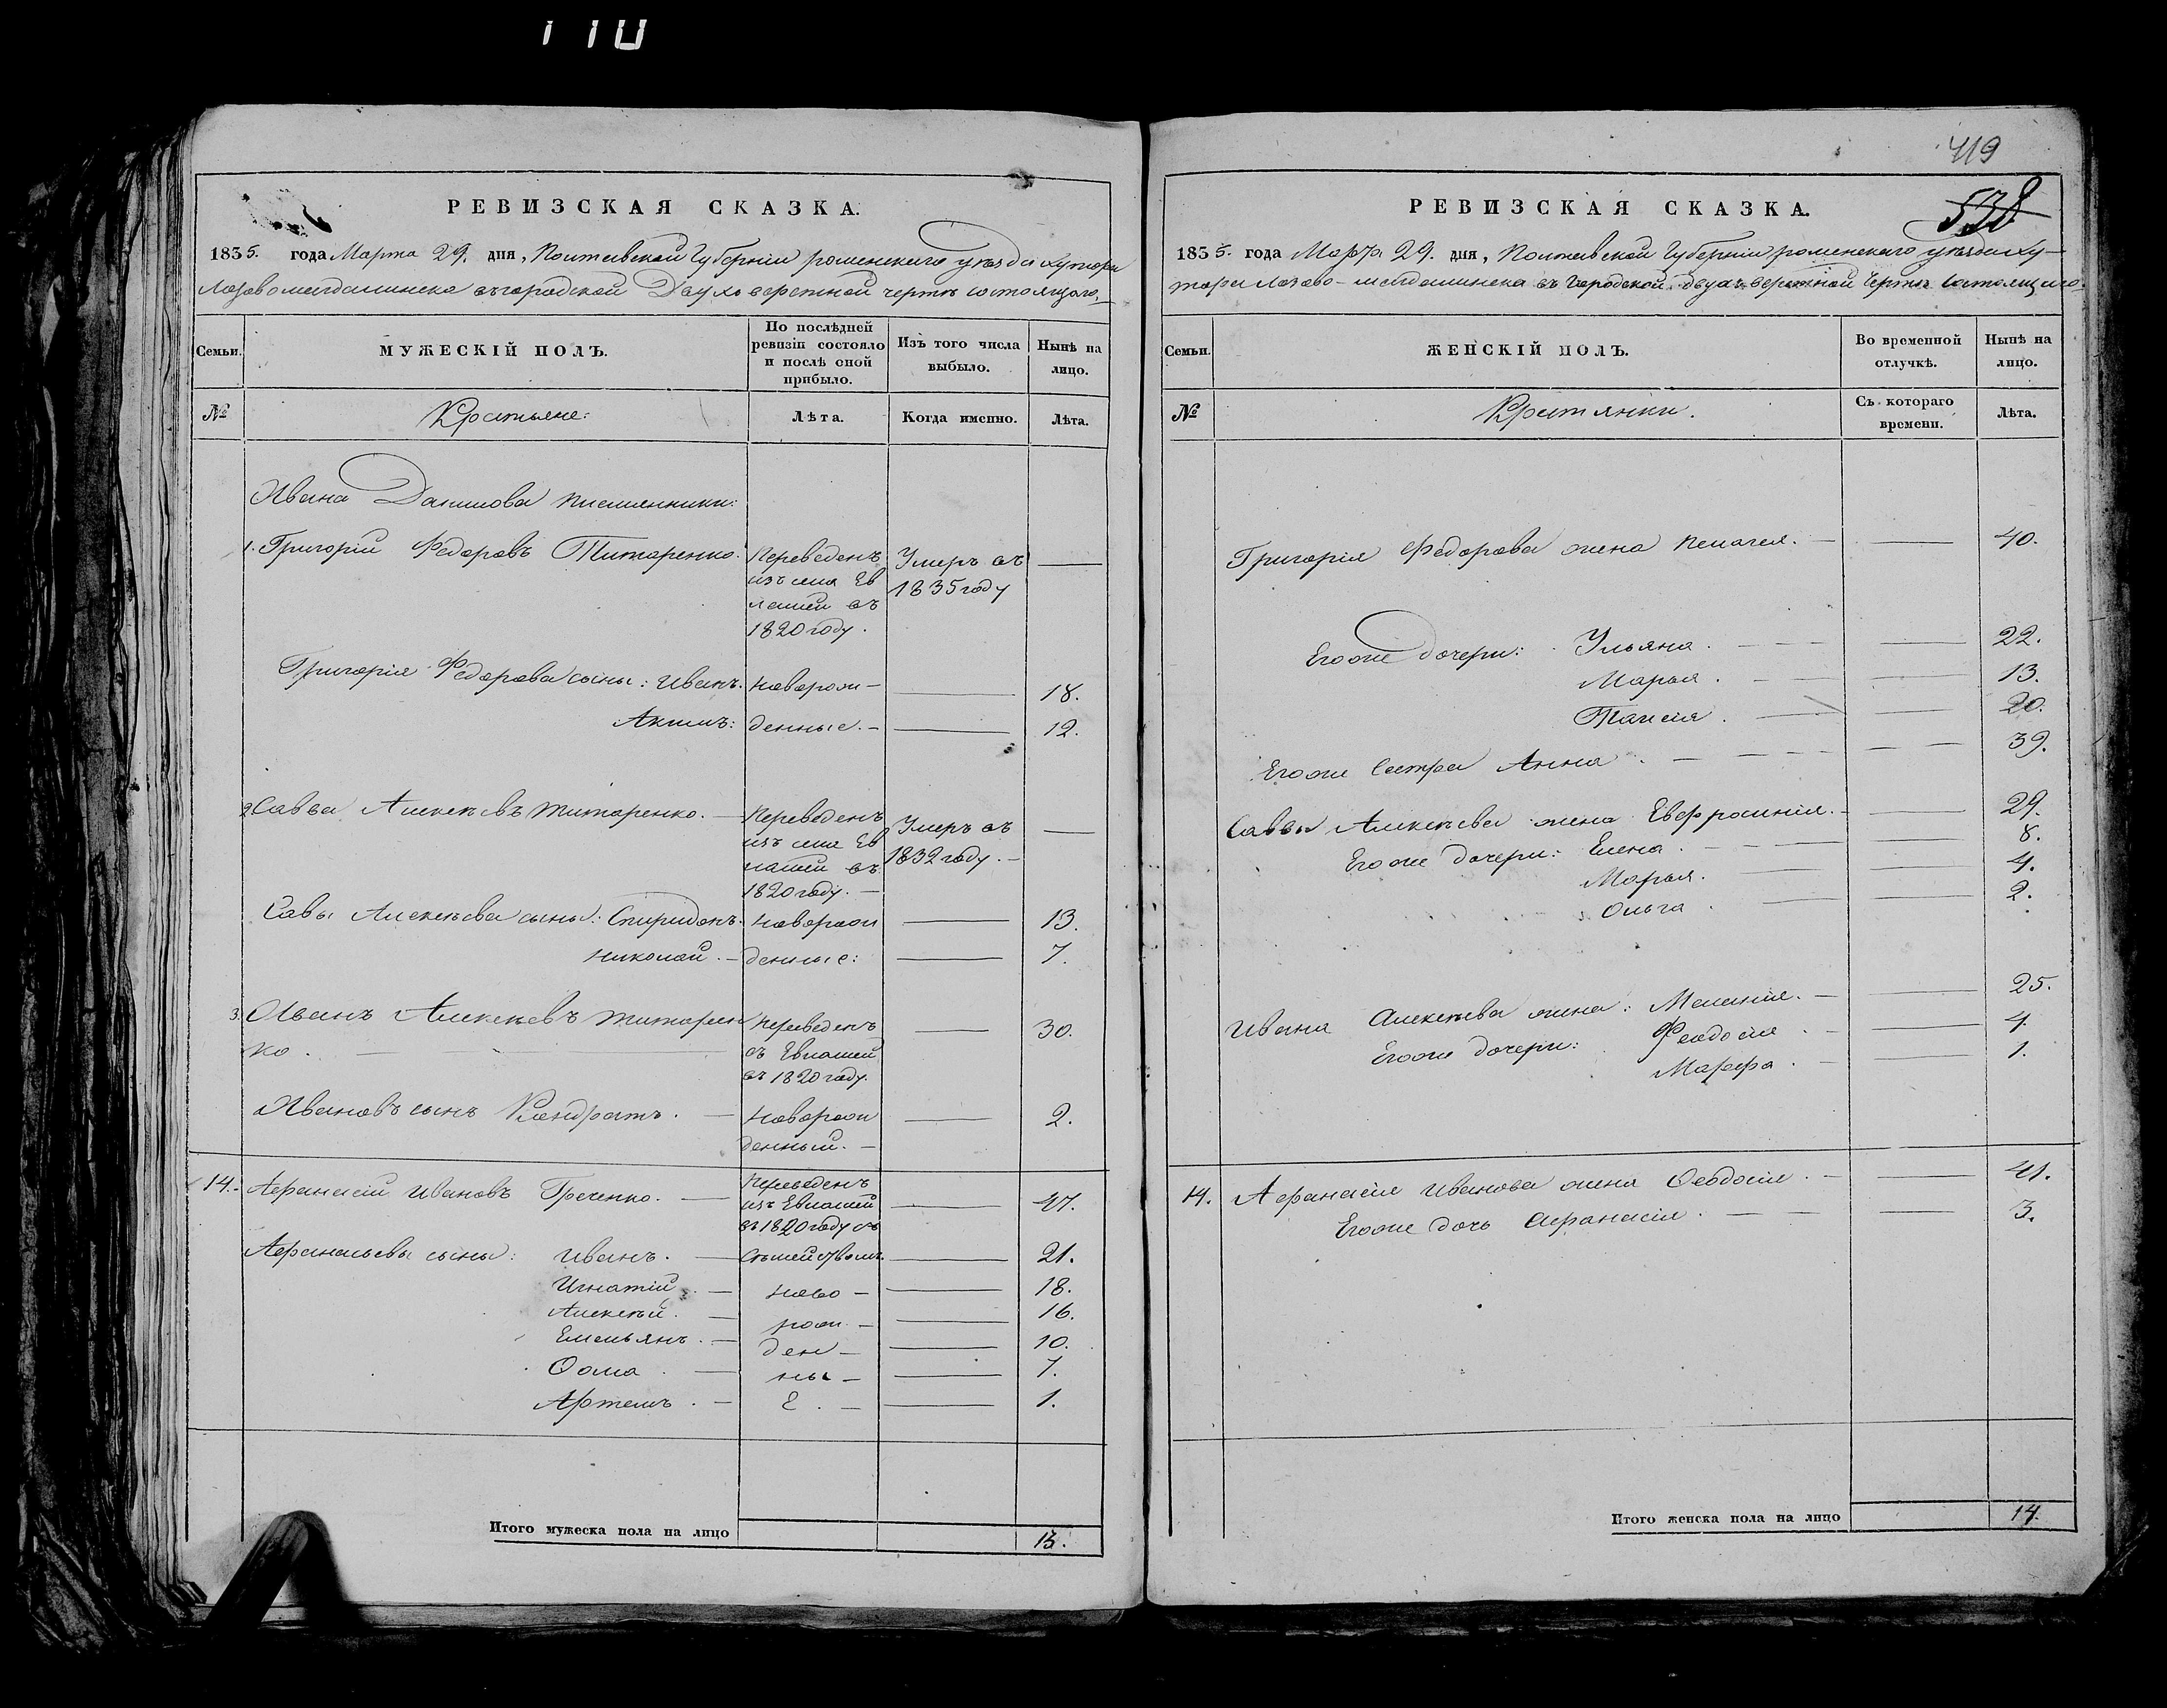 110
РЕВИЗСКАЯ СКАЗКА.
1835. года Марта 29. дня, Полтавской Губерніи роменскаго уѣзда хутора
въ городской Двухъ верстной чертѣ состоящаго,
Семьи.
МУЖЕСКІЙ ПОЛЪ.
По послѣдней ревизіи состояло и послѣ оной прибыло.
Изъ того числа выбыло.
Нынѣ на лицо.
№
Крестьяне:
Лѣта.
Когда именно.
Лѣта.
Ивана Данилова племянники:
1. Григорій Федоровъ Титаренко. Переведенъ Умеръ въ —
изъ села Ев 1835 году
лашей въ
1820 году.
Григорія Федорова сыны: Иванъ. новорож — 18.
Акимъ: денные. — 12.
2 Савва Алексѣевъ титаренко. — Переведенъ Умеръ въ —
изъ села Ев 1832 году. —
лашей въ
1820 году. —
Савы Алексѣева сыны: Спиридонъ. новорож — 13.
николай. — денные: — 7.
3. Иванъ Алексѣевъ титарен переведенъ — 30.
ко. — съ Евлашей
въ 1820 году.
Ивановъ сынъ Кондратъ. — новорож — 2.
денный. —
14. Афанасій Ивановъ Греченко. — Переведенъ
изъ Евлашей — 47.
въ 1820 году съ
Афанасьевы сыны: Иванъ. — Сѣмействомъ. — 21.
Игнатій. — ново — 18.
Алексѣй. — рож — 16.
Емельянъ. — ден — 10.
Ѳома. — ны — 7.
Артемъ. — е. — 1.
Итого мужеска пола на лицо 13.
419
538
РЕВИЗСКАЯ СКАЗКА.
1835. года Марта 29. дня, Полтавской Губерніи роменскаго уѣзда ху-
тора въ Городской двухъ верстной Чертѣ состоящаго.
Семьи.
ЖЕНСКІЙ ПОЛЪ.
Во временной отлучкѣ.
Нынѣ на лицо.
№
Крестянки.
Съ котораго времени.
Лѣта.
Григорія Федорова жена Пелагея. — 40.
Егоже дочери: Ульяна. — 22.
Марья. — 13.
Таисія. — 20.
Егоже Сестра Анна. — 39.
Саввы Алексѣева жена Евфросинія. — 29.
Егоже дочери: Елена. — 8.
Марья. — 4.
Ольга. — 2.
Ивана Алексѣева жена: Меланія. — 25.
Егоже дочери: Феодосія. — 4.
Марфа. — 1.
14. Афанасія Иванова жена Ѳеодосія. — 41.
Егоже дочь Афанасія. — 3.
Итого женска пола на лицо 14.